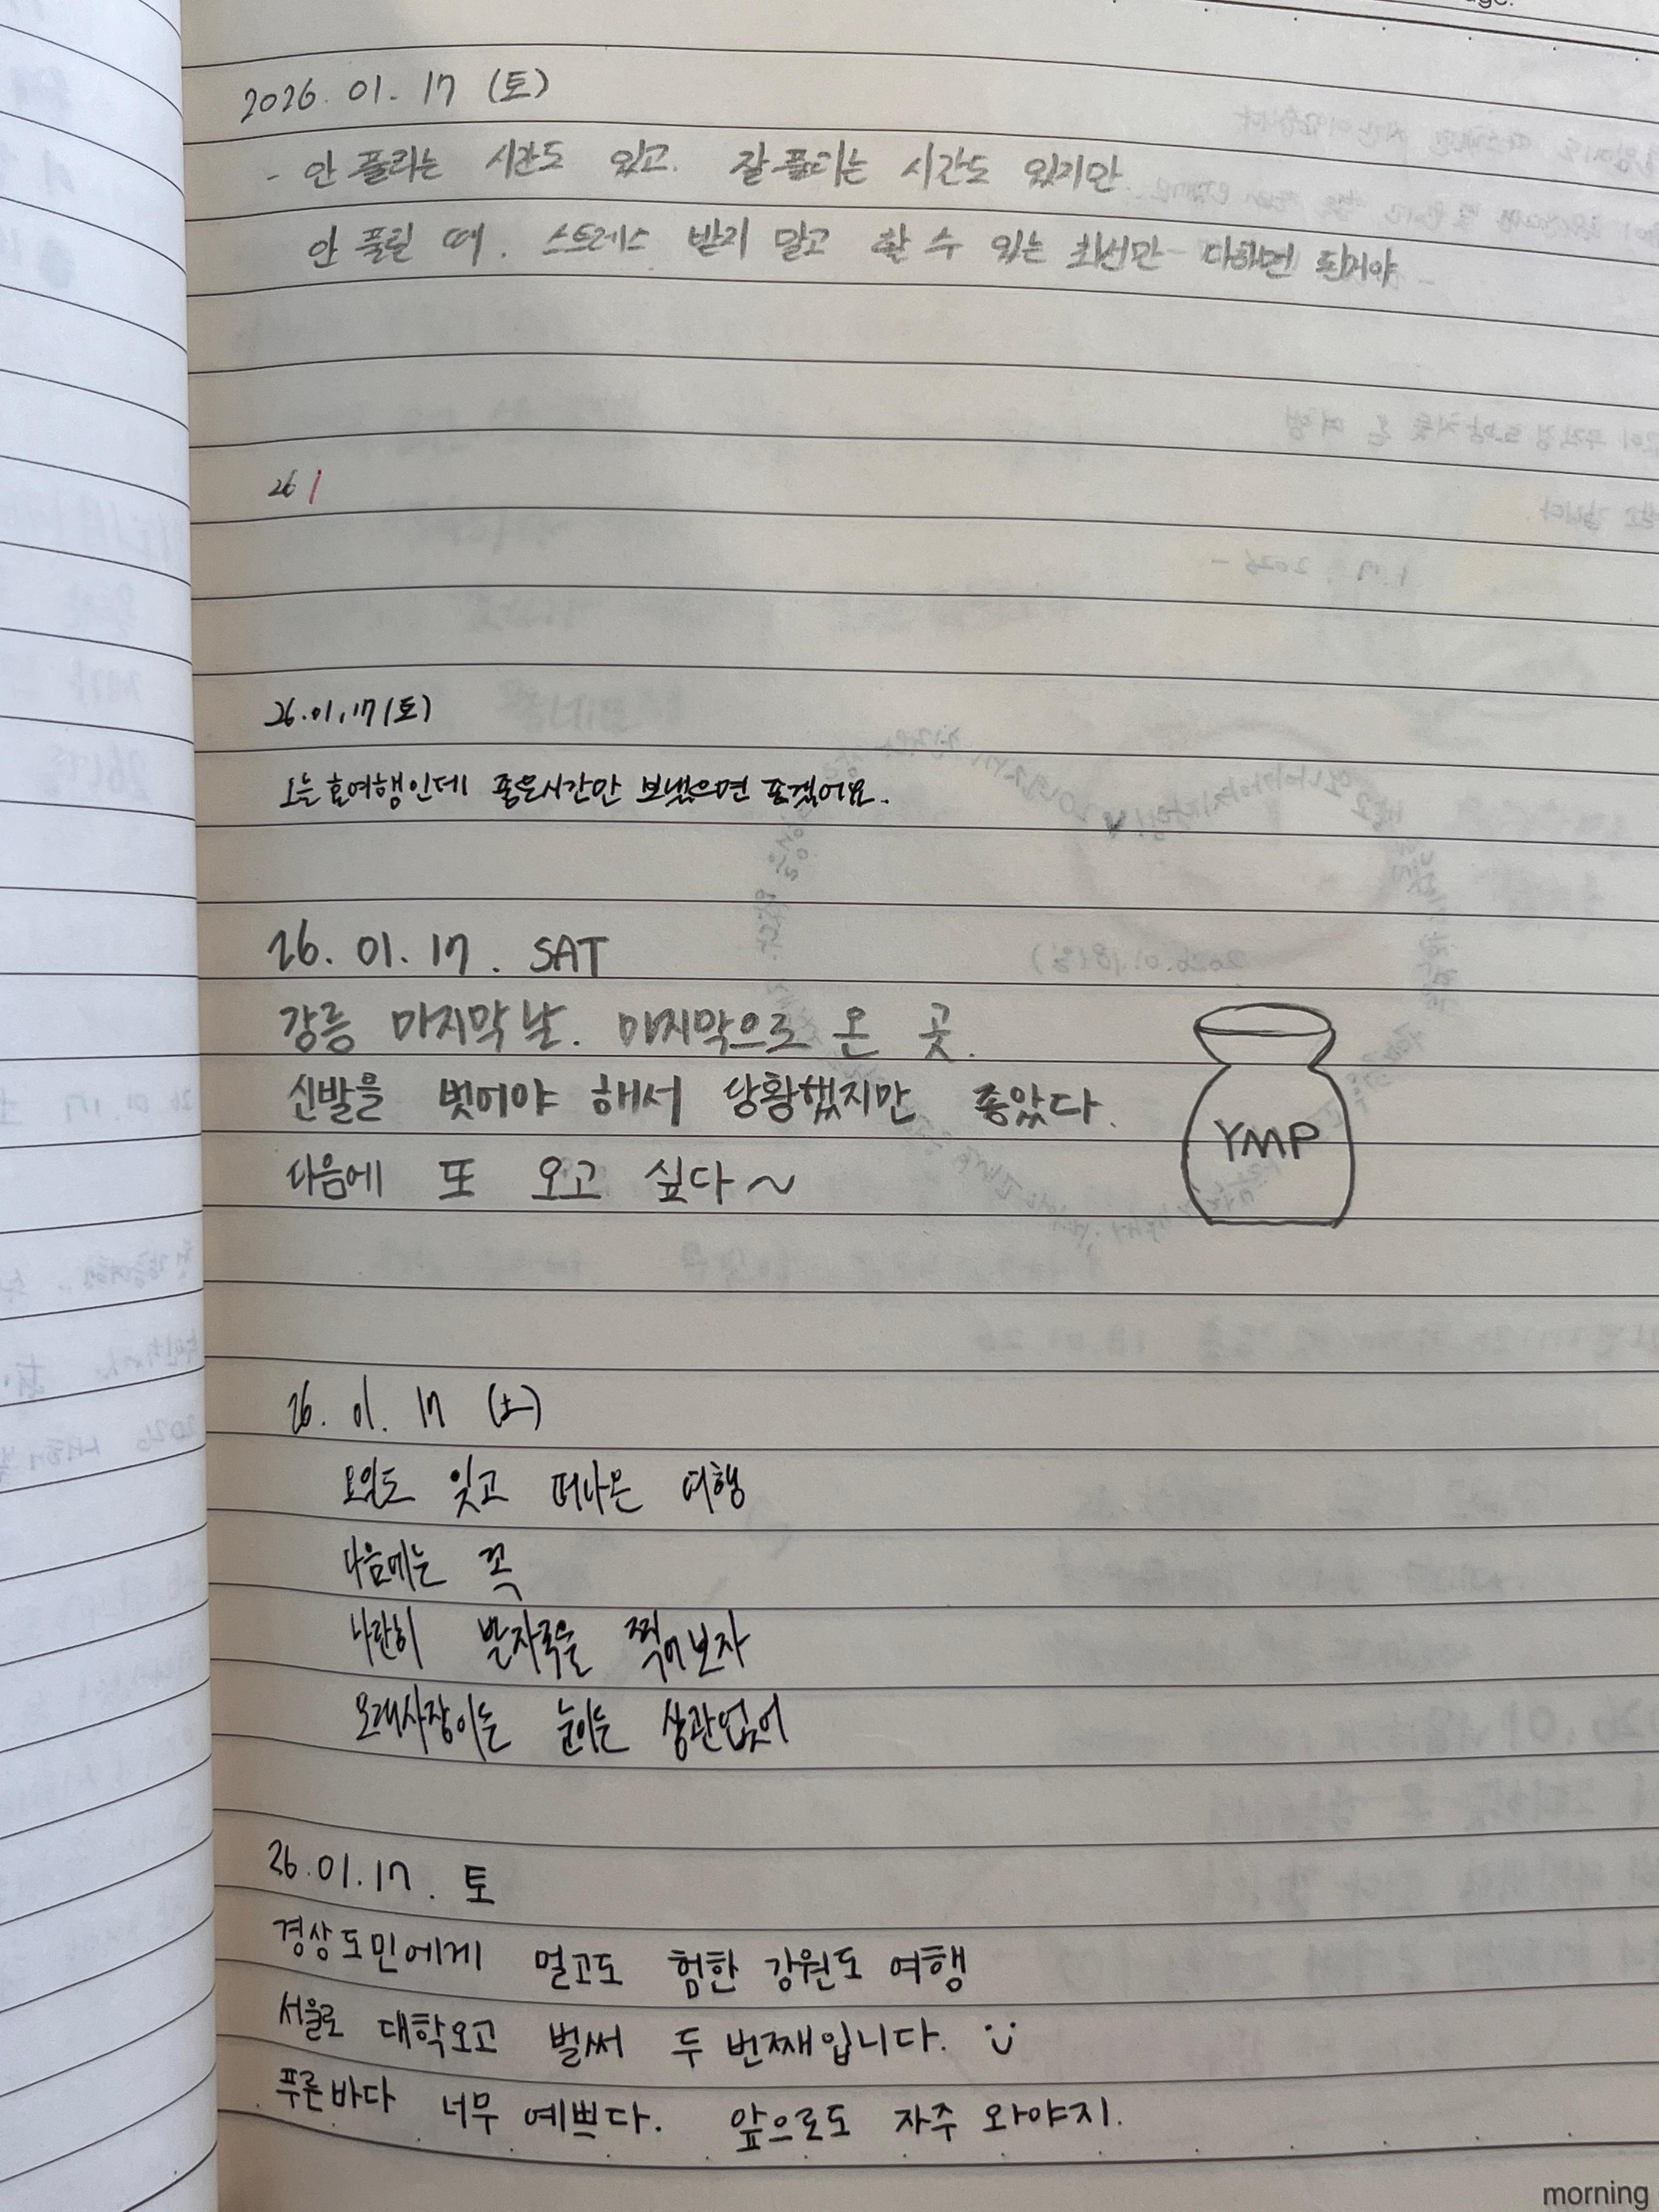 2026. 01. 17 (토)
- 안 풀리는 시간도 있고. 잘 풀리는 시간도 있지만
안 풀릴 때. 스트레스 받지 말고 할 수 있는 최선만 다하면 된거야 -
26
26.01.17(토)
오늘 여행인데 좋은시간만 보냈으면 좋겠어요.
26. 01. 17. SAT
강릉 마지막 날. 마지막으로 온 곳.
신발을 벗어야 해서 당황했지만 좋았다.
다음에 또 오고 싶다~
YMP
26. 01. 17 (土)
요일도 잊고 떠나온 여행
다음에는 꼭
나란히 발자국을 찍어보자
모래사장이든 눈이든 상관없어
26.01.17. 토
경상도민에게 멀고도 험한 강원도 여행
서울로 대학오고 벌써 두 번째입니다.
푸른바다 너무 예쁘다. 앞으로도 자주 와야지.
morning